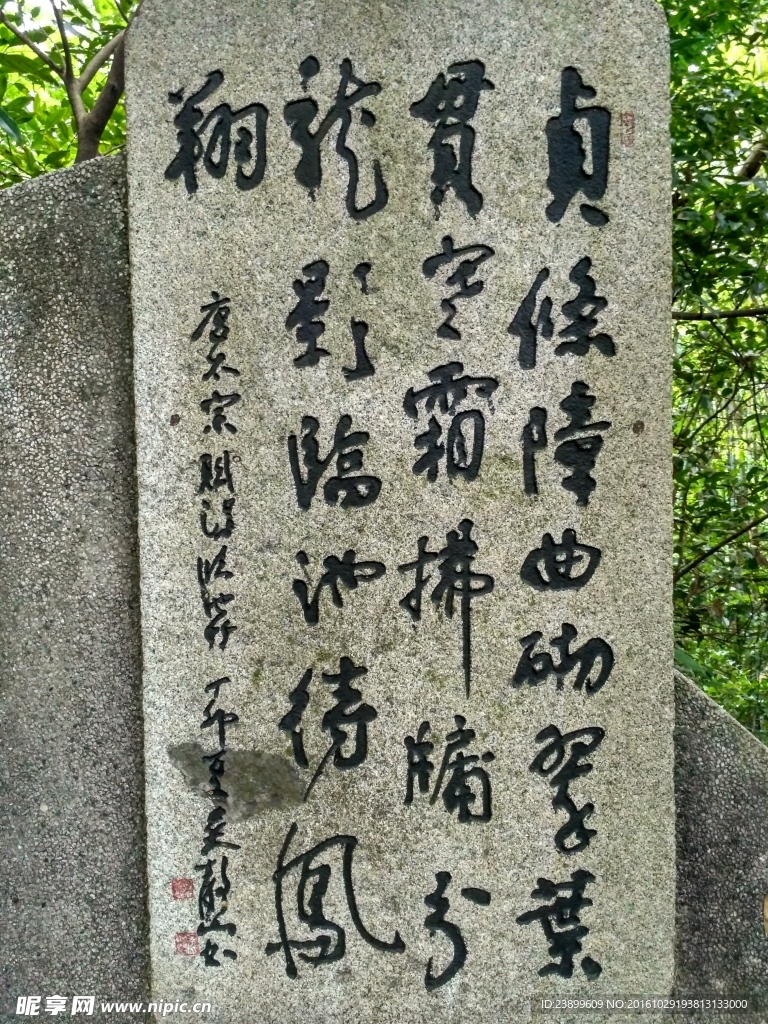 貞條障曲砌翠葉
貫寒霜拂牖分
龍影臨池待鳳
翔
唐太宗賦得临池竹 丁卯夏吴
昵享网 www.nipic.cn
ID:23899609 NO:20161029193813133000